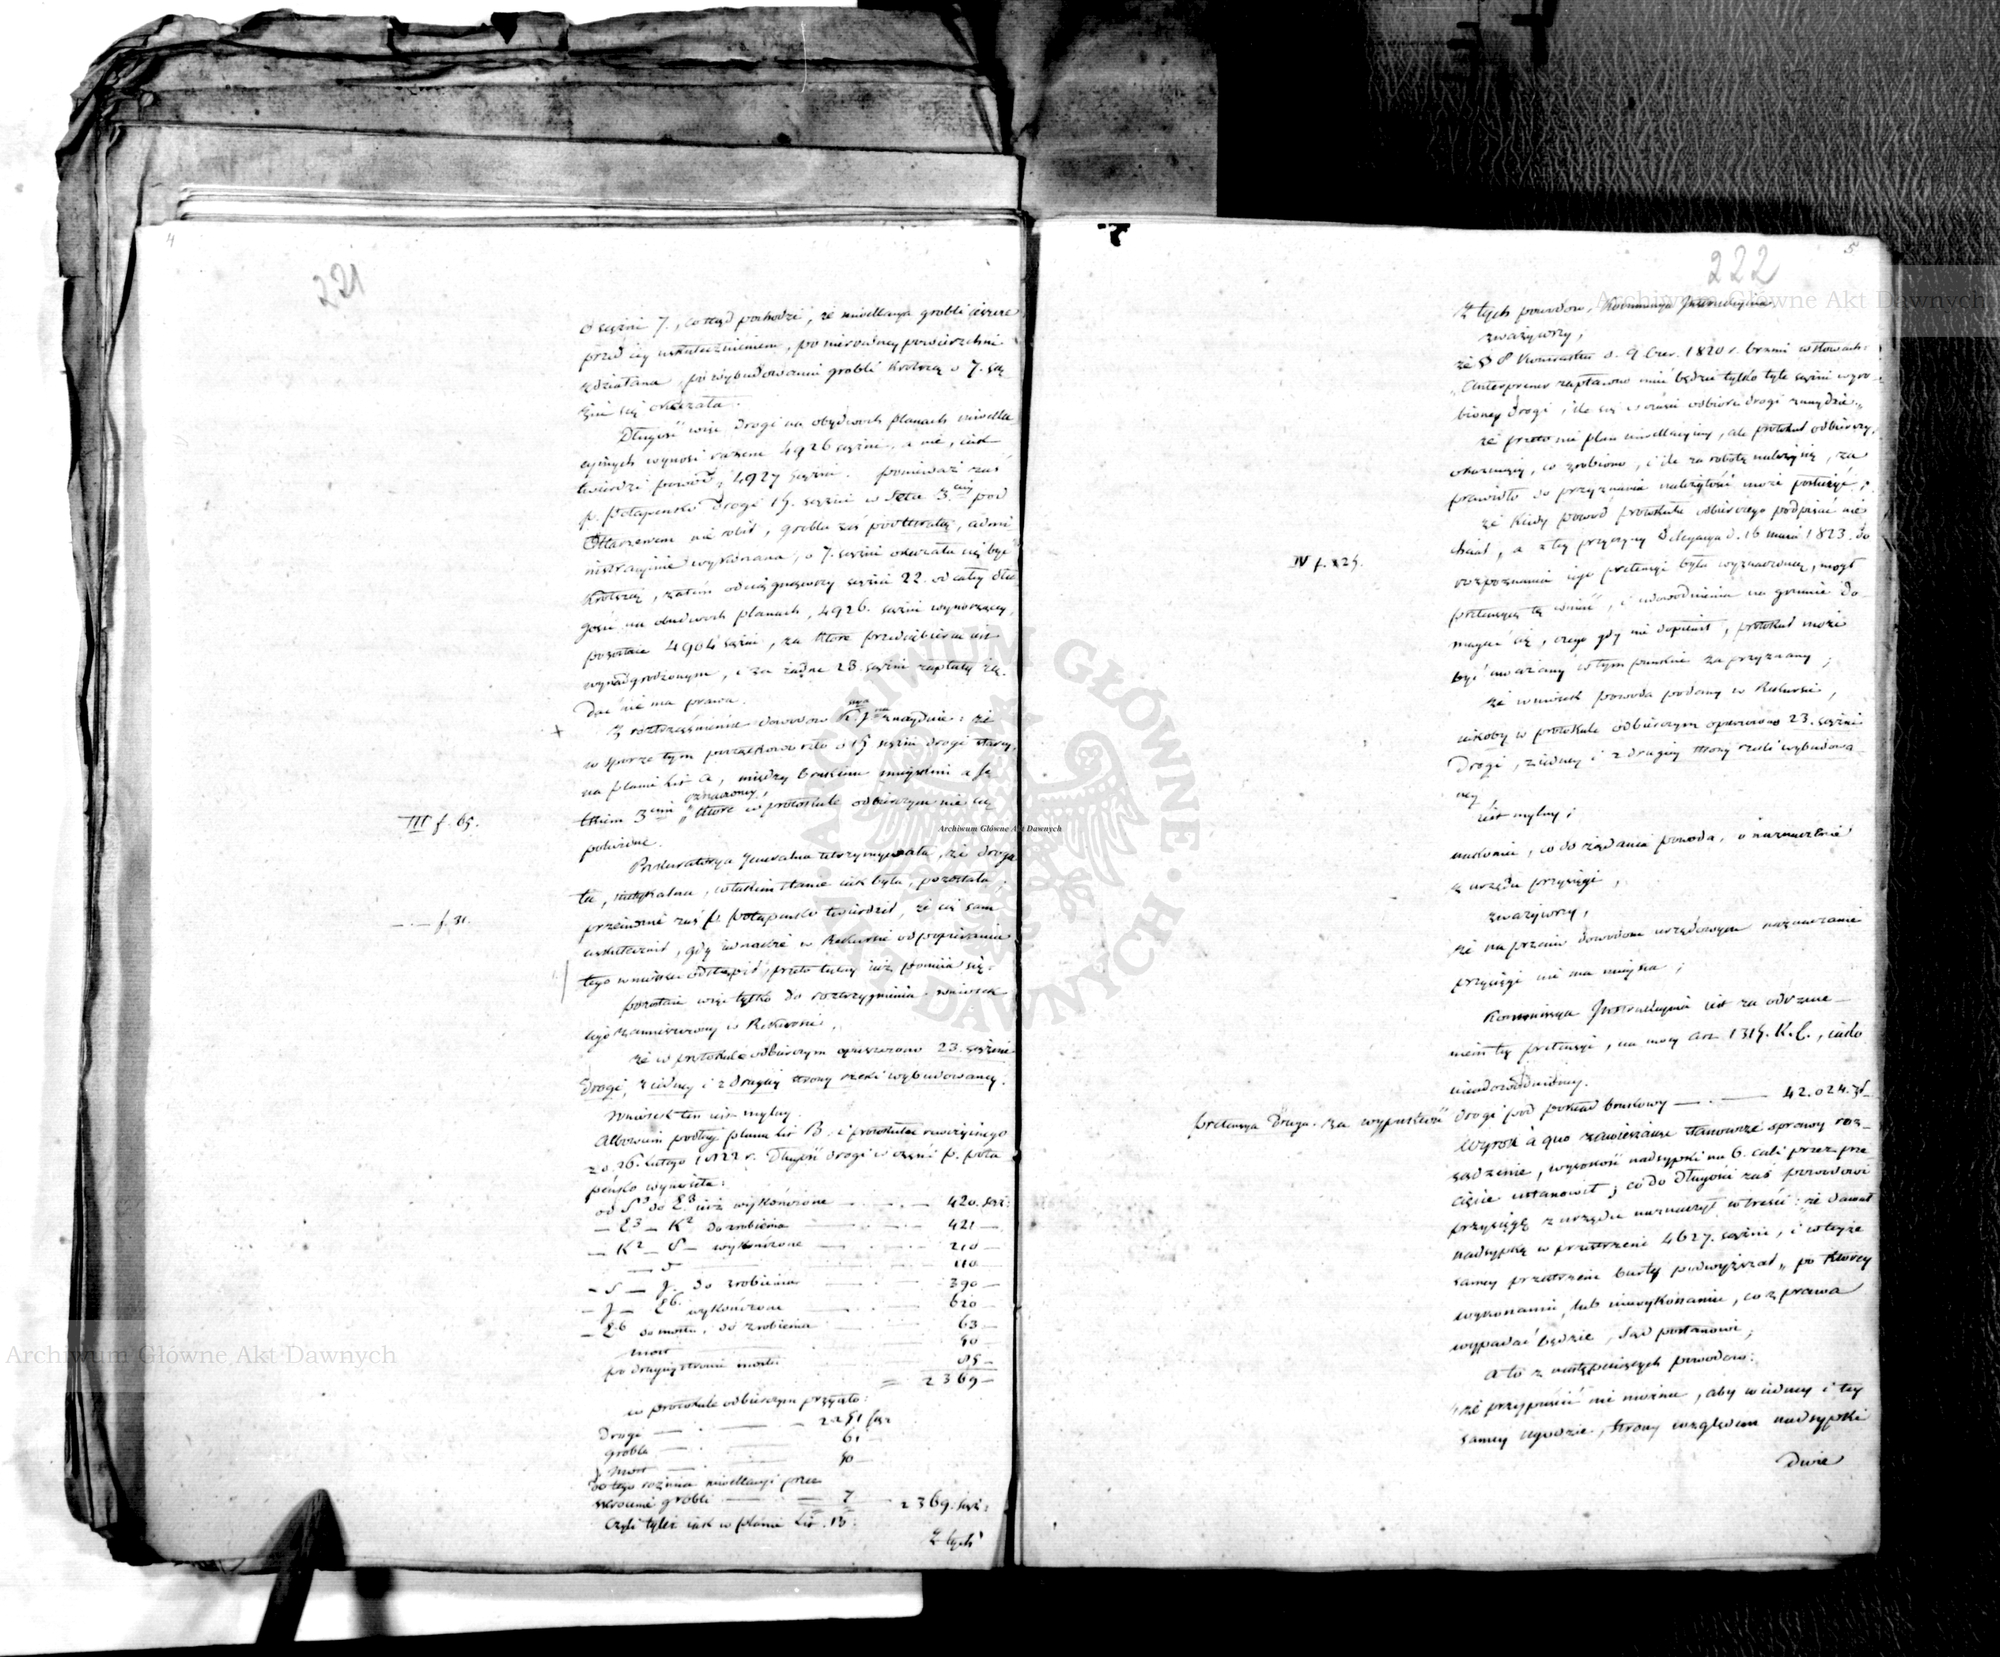 4
221
o sążni 7., co ztąd pochodzi, że niwellacya grobli jeszcze
przed jey uskutecznieniem, po nierówney powierzchni
zdziałana, po wybudowaniu grobli krótszą o 7. sąż
żni się okazała.
Długość więc drogi na obydwóch planach niwella
cyinych wynosi razem 4926 sążni, a nie, iak
twierdzi powód, 4927 sążni. Ponieważ zaś
p. Potapenko drogi 15. sążni w Szta 3.cim pod
nie robił, grobla zaś admi
nistracyinie wykonana, o 7. sążni okazała się być
krótszą, zatém odciągnąwszy sążni 22. od całey dłu
gości na obudwóch planach, 4926. sążni wynoszącey,
pozostaie 4904 sążni, za które przedsiębierca iest
wynadgrodzonym, i za żadne 23. sążni zapłaty żą-
dać nie ma prawa.
Z roztrząśnienia dowodów znayduie: że
w sporze tym początkowo szło o 15 sążni drogi starey,
na planie Lit. A, między brukiem mieyskim a Sz
tkiem 3cim oznaczoney, które w protokule odbiorczym nie są
policzone.
III f. 65.
Prokuratorya Jeneralna utrzymywała, że droga
ta, nietykalna, w takim stanie iak była, pozostała;
— . — f. 31.
przeciwnie zaś p. Potapenko twierdził, że ią sam
uskutecznił, gdy iednakże w Rekursie od popierania
tego wniosku odstąpił, przeto tutay iuż pomiia się.
Pozostaie więc tylko do rozstrzygnienia wniosek
iego zamieszczony w Rekursie,
że w protokule odbiorczym opuszczono 23. sążnie
drogi, z iedney i z drugiey strony rzeki wybudowaney.
Wniosek ten iest mylny.
Albowiem podług planu Lit. B. i protokułu rewizyinego
z d. 26. Lutego 1822 r. długość drogi w części p. Pota
penko wynosiła:
od S3 do E3 iuż wykończone — . — . — 420. sąż:
— E3 — K2 do zrobienia — . — . — 421 —
— K2 — S — wykończone — . — . — 210 —
110 —
— S — J. do zrobienia — . — 390 —
— J — E6. wykończone — . — 620 —
— E6 do mostu, do zrobienia — 63 —
most — 50 —
po drugiey stronie mostu — 85 —
= 2369 —
w protokule odbiorczym przyięto:
drogi — . — — 2251 sąż
grobla — . — 61
i most — 50 —
do tego różnica niwellacyi przez
skrócenie grobli — = 7 — 2369. sąż:
czyli tyleż iak w planie Lit. B.
Z tych
5
222
Z tych powodów, Kommissya Instrukcyina
zważywszy,
że § 8 Kontraktu d. 9 Czer. 1820 r. brzmi w słowach:
„Antreprener zapłacono mieć będzie tylko tyle sążni wyro-
bioney drogi, ile się w czasie odbioru drogi znaydzie„
że przeto nie plan niwellacyiny, ale protokuł odbiorczy,
okazuiący, co zrobiono, i ile za robotę należy się, za
prawidło do przyznania należytości może posłużyć;
że kiedy powód protokułu odbiorczego podpisać nie
chciał, a z tey przyczyny Delegacya d. 16 maia 1823. do
IV f. 125.
rozpoznania iego pretensyi była wyznaczoną, mógł
pretensyą tę wnieść, i udowodnienia na gruncie do-
magać się, czego gdy nie dopełnił, protokuł może
być uważany w tym punkcie za przyznany;
że wniosek powoda podany w Rekursie,
iakoby w protokule odbiorczym opuszczono 23. sążni
drogi, z iedney i z drugiey strony rzeki wybudowa-
ney,
iest mylny;
nakoniec, co do żądania powoda, o naznaczenie
z urzędu przysięgi,
zważywszy,
że naprzeciw dowodom urzędowym naznaczenie
przysięgi nie ma mieysca;
Kommissya Instrukcyina iest za odrzuce-
niem tey pretensyi, na mocy art. 1315. K.C., iako
nieudowodnioney.
Pretensya Druga. za wypusłość drogi pod pokład brukowy — . — 42.024. zł
Wyrok à quo zawieszaiąc stanowcze sprawy roz-
sądzenie, wysokość nadsypki na 6. cali przez prze-
cięcie ustanowił; co do długości zaś powodowi
przysięgę z urzędu naznaczył w treści: że dawał
nadsypkę w przestrzeni 4627. sążni, i w teyże
samey przestrzeni burty podwyższał „ po którey
wykonaniu, lub niewykonaniu, co z prawa
wypadać będzie, Sąd postanowi;
a to z następuiących powodów:
że przypuścić nie można, aby w iedney i tey
samey ugodzie, strony względem nadsypki
dwie
Archiwum Główne Akt Dawnych
Archiwum Główne Akt Dawnych
Archiwum Główne Akt Dawnych
ARCHIWUM GŁÓWNE AKT DAWNYCH